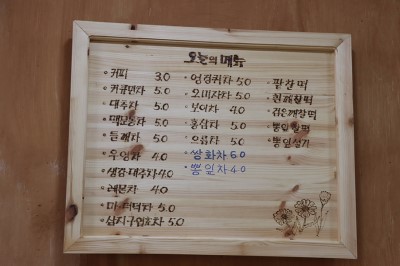 오늘의 메뉴
커피 3.0
커큐민차 5.0
대추차 5.0
맥문동차 5.0
들깨차 5.0
우엉차 4.0
생강·대추차 4.0
레몬차 4.0
마·더덕차 5.0
삼지구엽초차 5.0
엉겅퀴차 5.0
오미자차 5.0
보이차 4.0
홍삼차 5.0
으름차 5.0
쌍화차 6.0
뽕잎차 4.0
팥찰떡
흰깨찰떡
검은깨찰떡
뽕잎찰떡
뽕잎설기